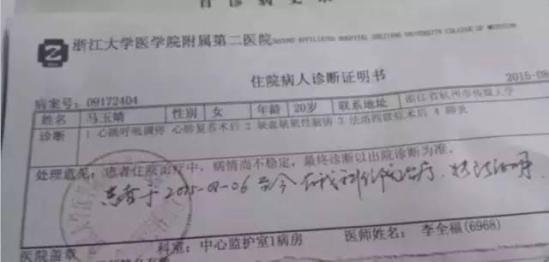 浙江大学医学院附属第二医院SECOND AFFILIATED HOSPITAL ZHEJIANG UNIVERSITY COLLEGE OF MEDICINE
住院病人诊断证明书
病案号: 09172404 2015-0
姓名 马玉婧 性别 女 年龄 20岁 联系地址 浙江省杭州市传媒大学
诊断 1 心跳呼吸骤停 心肺复苏术后 2 缺血缺氧性脑病 3 法洛四联症术后 4 肺炎
处理意见: 患者住院治疗中,病情尚不稳定,最终诊断以出院诊断为准。
患者于2015-09-06至今在我科住院治疗,特此证明
医院盖章 科室: 中心监护室1病房 医师姓名: 李全福(6968)